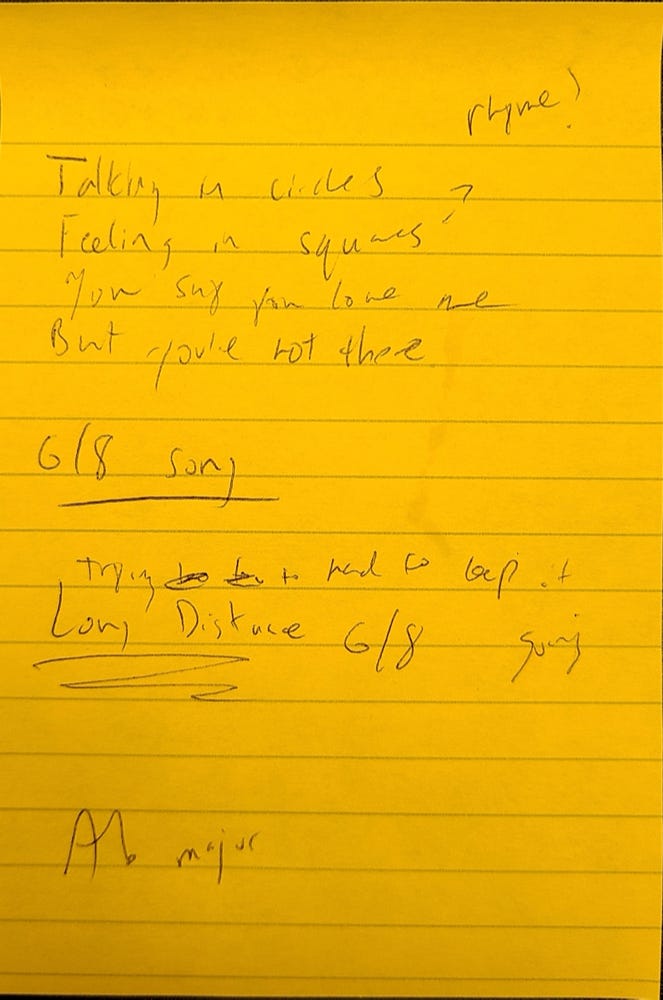 rhyme?
Talking in circles
Feeling in squares
You say you love me
But you're not there
6/8 song
Trying to hard to keep it
Long Distance 6/8 going
Ab major